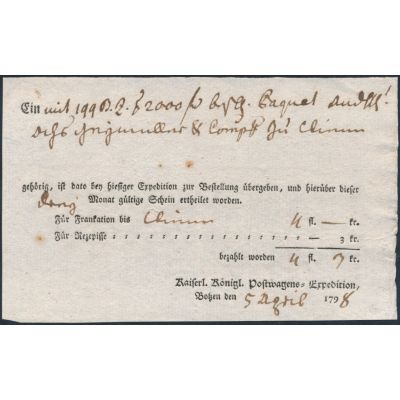 Ein mit 199 B.Z. f 2000 fl besch. Paquet
Ochs Geymuller & Comp. zu Wienn
gehörig, ist dato bey hiesiger Expedition zur Bestellung übergeben, und hierüber dieser
drey Monat gültige Schein ertheilet worden.
Für Frankation bis Wienn 4 fl. — kr.
Für Rezepisse — 3 kr.
bezahlt worden 4 fl. 3 kr.
Kaiserl. Königl. Postwagens-Expedition,
Botzen den 5 April 1798